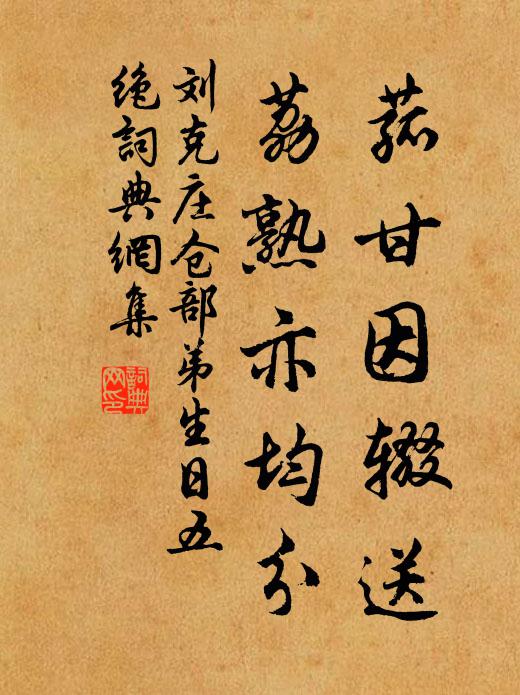 菰甘因辍送
荔熟亦均分
刘克庄仓部弟生日五
绝詞典網集
詞典
网印